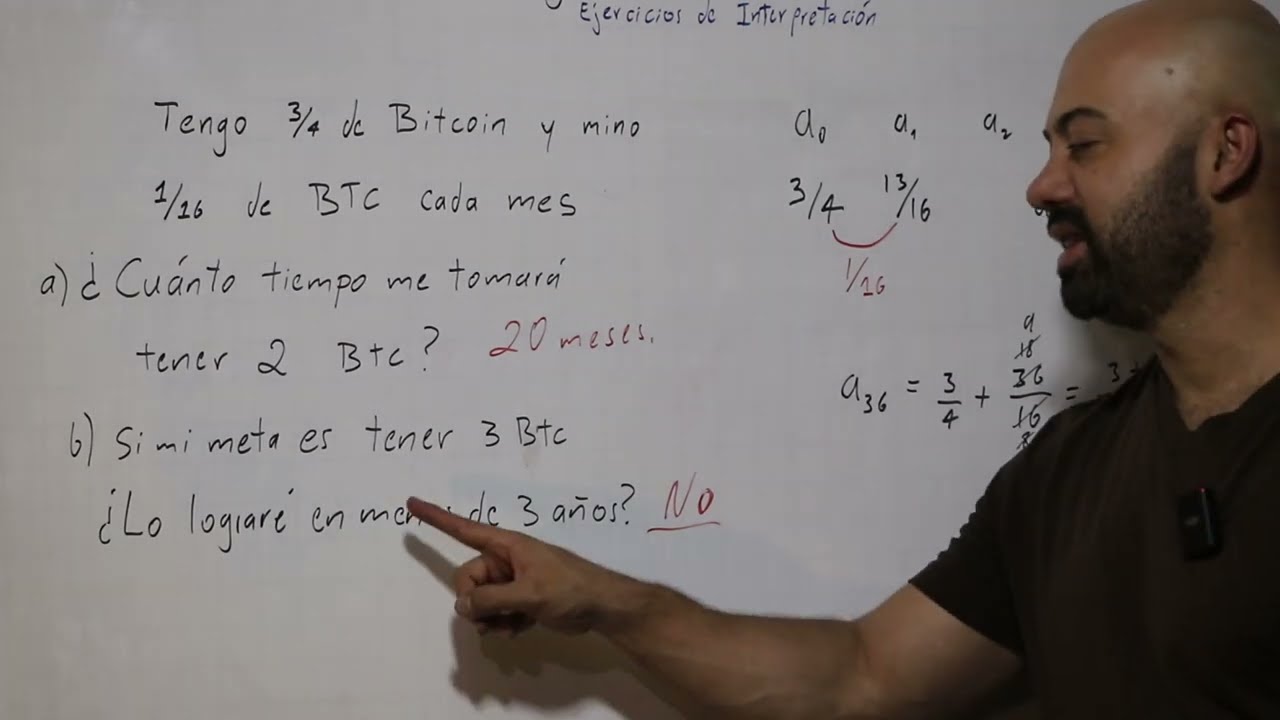 Ejercicios de Interpretación
Tengo 3/4 de Bitcoin y mino
1/16 de BTC cada mes
a) ¿Cuánto tiempo me tomará
tener 2 Btc? 20 meses.
b) Si mi meta es tener 3 Btc
¿Lo lograré en de 3 años? No
a₀ a₁ a₂
3/4 13/16
1/16
9
18
a₃₆ = 3/4 + 36/16 =
8